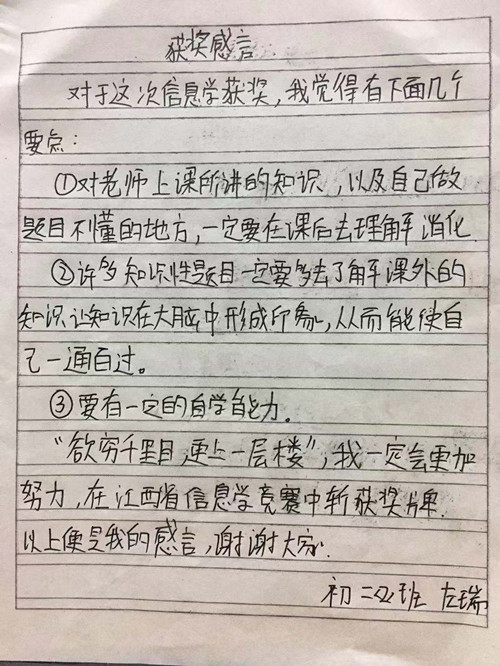 获奖感言
对于这次信息学获奖,我觉得有下面几个
要点:
①对老师上课所讲的知识,以及自己做
题目不懂的地方,一定要在课后去理解消化.
②许多知识性题目一定要多去了解课外的
知识让知识在大脑中形成印象,从而能使自
己一通百过。
③要有一定的自学能力.
“欲穷千里目,更上一层楼”,我一定会更加
努力,在江西省信息学竞赛中斩获奖牌.
以上便是我的感言,谢谢大家.
初二 班 左瑞